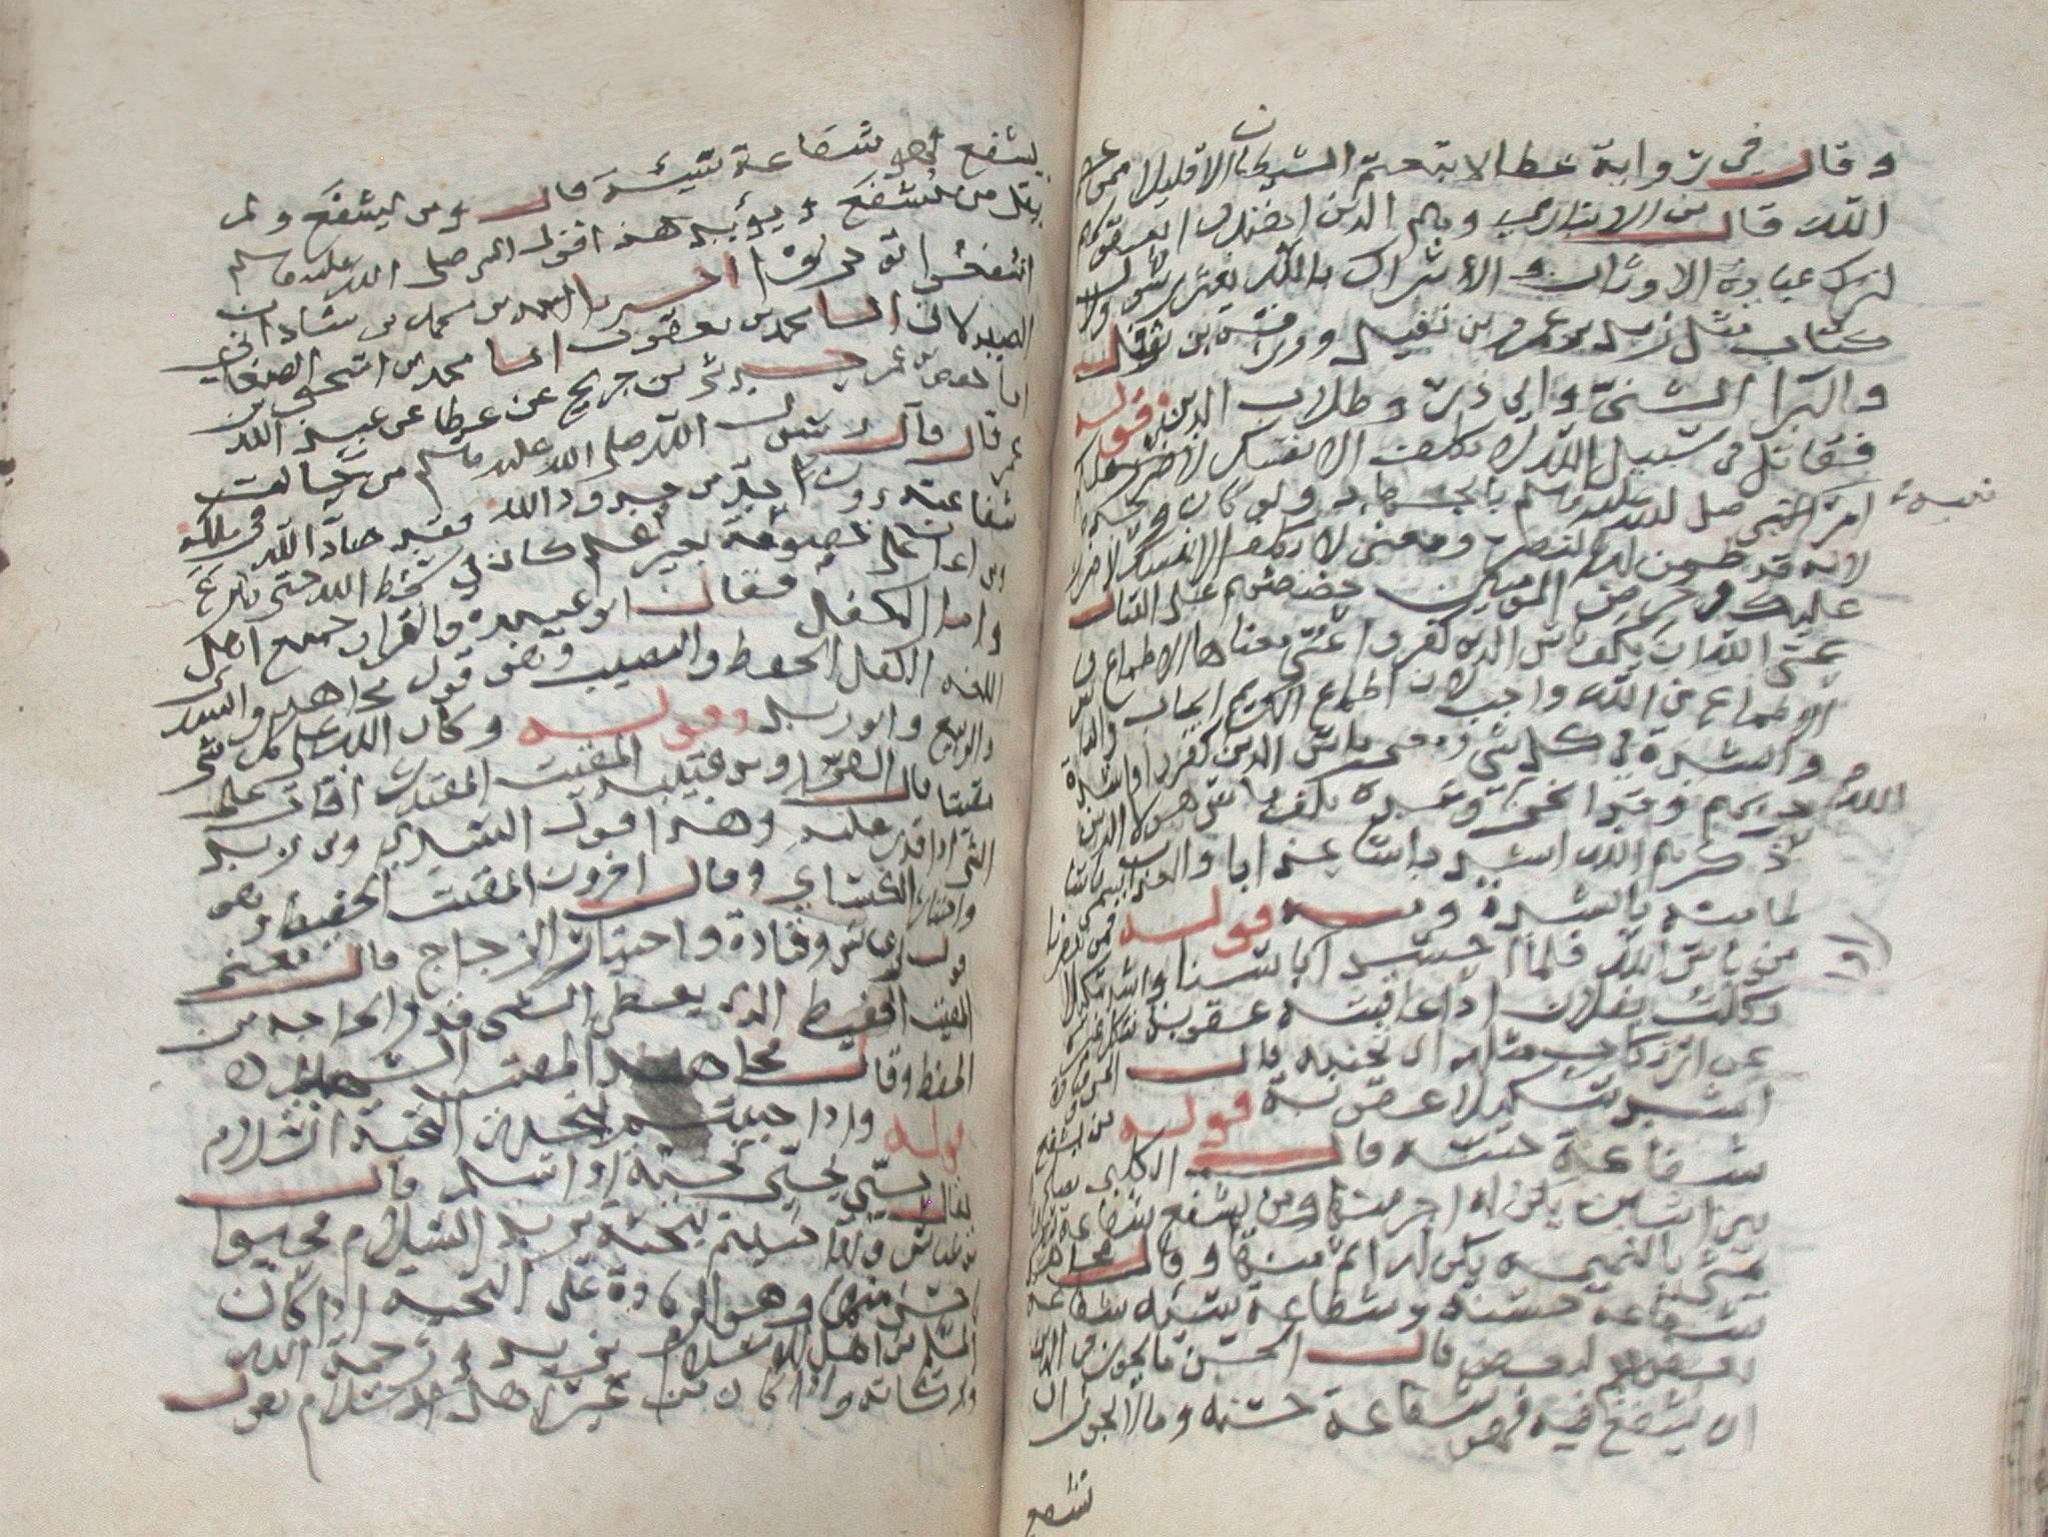 وقال في رواية عطا لاتبعتم الشيطان الا قليلا ممن عصم
الله قال بن الانباري وهم الذين اهتدوا بعقولهم
لترك عبادة الاوثان والاشراك بالله بغير رسول ولا
كتاب مثل زيد بن عمرو بن نفيل وورقة بن نوفل
والبرا الشني وابي ذر وطلاب الدين قوله
فقاتل في سبيل الله لا تكلف الا نفسك
امر النبي صلى الله عليه وسلم بالجهاد ولو كان وحده
لانه قد ضمن له النصر ومعنى لا تكلف الا نفسك لا ضرر
عليك وحرض المومنين حضضهم على القتال
عسى الله ان يكف باس الذين كفروا عسى معناها الاطماع
والاطماع من الله واجب لان اطماع الكريم ايجاب والباس
والشدة في كل شي ومعنى باس الذين كفروا
حربهم وقد انجز وعده بكف باس هولا الذين
ذكرهم الله اشد باسا عذابا
لباسه بالشدة ومنه قوله فمن ينصرنا
من باس الله فلما احسوا باسنا واشد تنكيلا
نكلت بفلان اذا عاقبته عقوبة تنكل غيره
عن ارتكاب مثله قال
اشد تنكيلا عقوبة قوله من يشفع
شفاعة حسنة قال الكلبي يصلح
بين اثنين يكن له اجر منها ومن يشفع شفاعة سيئة
يمشي بالنميمة يكن له اثم منها وقال مجاهد
شفاعة حسنة وشفاعة سيئة شفاعة
بعضهم لبعض قال الحسن ما يجوز في الدين
ان يشفع فيه فهو شفاعة حسنة وما لا يجوز ان
يشفع
يشفع فهو شفاعة سيئة قال ومن يشفع ولم
يقل من يشفع ويؤيد هذا قول النبي صلى الله عليه وسلم
اشفعوا تؤجروا اخبرنا
الصيدلاني انا محمد بن يعقوب انا محمد بن اسحق الصغاني
بن جريج عن عطا عن عبد الله بن
عمر قال قال رسول الله صلى الله عليه وسلم من حالت
شفاعته دون حد من حدود الله فقد ضاد الله في ملكه
ومن اعان على خصومة بغير علم كان في سخط الله حتى ينزع
واما الكفل فقال ابو عبيدة والفرا وجميع اهل
اللغة الكفل الحظ والنصيب وهو قول مجاهد والسدي
والربيع وابن زيد وقوله وكان الله على كل شي
مقيتا قال الفرا وبن قتيبة المقيت المقتدر اقات على
الشي اذا قدر عليه وهذا قول السدي وبن زيد
واختيار الكسائي وقال اخرون المقيت الحفيظ وهو
قول بن عباس وقتادة واختيار الزجاج قال معنى
المقيت الحفيظ الذي يعطي الشي قدر الحاجة من
الحفظ وقال مجاهد المقيت الشهيد
قوله واذا حييتم بتحية التحية السلام
يقال حيي يحيي تحية اذا سلم قال
بن عباس واذا حييتم بتحية يريد السلام فحيوا
باحسن منها وهو الزيادة على التحية اذا كان
المسلم من اهل الاسلام يزيد ورحمة الله
وبركاته واذا كان من غير اهل الاسلام يقول